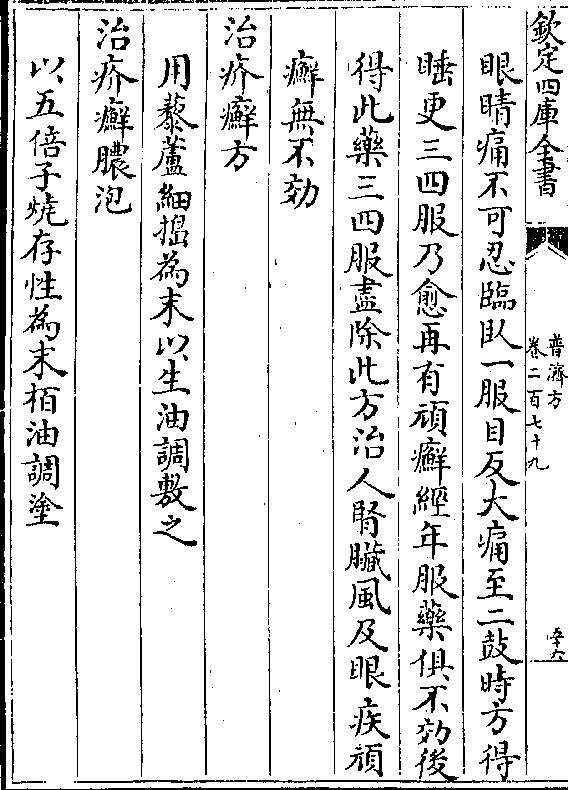 欽定四庫全書
普濟方
卷二百七十九
五十六
眼睛痛不可忍臨臥一服目反大痛至二鼓時方得
睡更三四服乃愈再有頑癬經年服藥俱不効後
得此藥三四服盡除此方治人腎臟風及眼疾頑
癬無不効
治疥癬方
用藜蘆細搗為末以生油調敷之
治疥癬膿泡
以五倍子燒存性為末栢油調塗